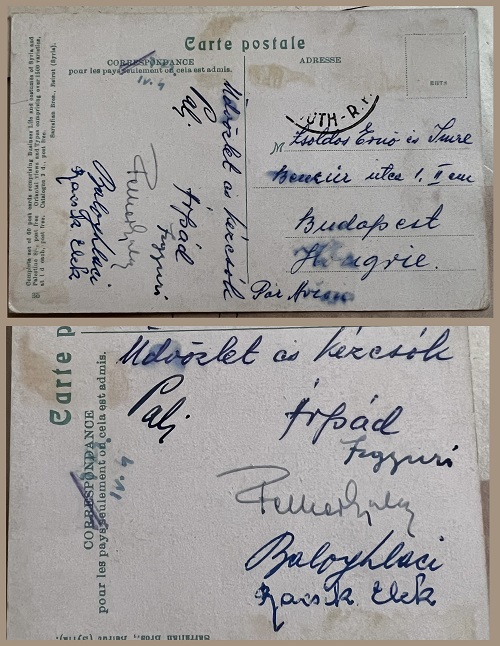 Carte postale
CORRESPONDANCE
pour les pays seulement où cela est admis.
ADRESSE
Complete set of 60 post cards comprising Business Life and costumes of Syria and
Palestine 5/-, post free Oriental Views and Types comprising over 1500 varieties,
at 1 d. each, post free. Catalogue 3 d., post free.
Sarrafian Bros., Beirut (Syria).
IV. 4
Üdvözlet és kézcsók
Pali
Árpád
Baloghlaci
Racsk Elek
Zsoldos Ernő és Imre
Benczúr utca 1. II em
Budapest
Hongrie.
Par Avion
Carte p
CORRESPONDANCE
pour les pays seulement où cela est admis.
IV. 4
Üdvözlet és kézcsók
Pali
Árpád
Baloghlaci
Racsk Elek
Sarrafian Bros., Beirut (Syria)